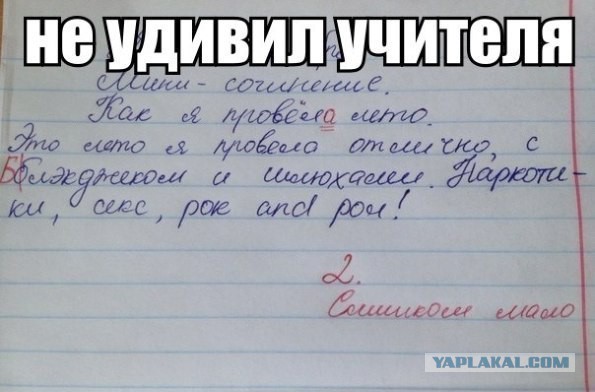 не удивил учителя
Мини-сочинение.
Как я провёла лето.
Это лето я провела отлично, с
Блэкджеком и шлюхами. Наркоти-
ки, секс, рок and рол!
2.
Слишком мало
YAPLAKAL.COM